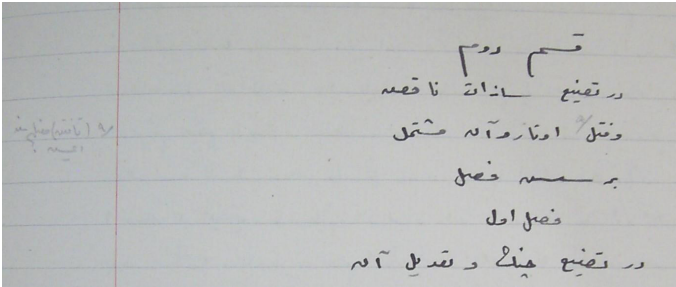 قسم دوم
در تصنیع سازات ناقصه
وفتل اوتار و آن مشتمل
بر سه فصل
فصل اول
در تصنیع چنگ و تعدیل آن